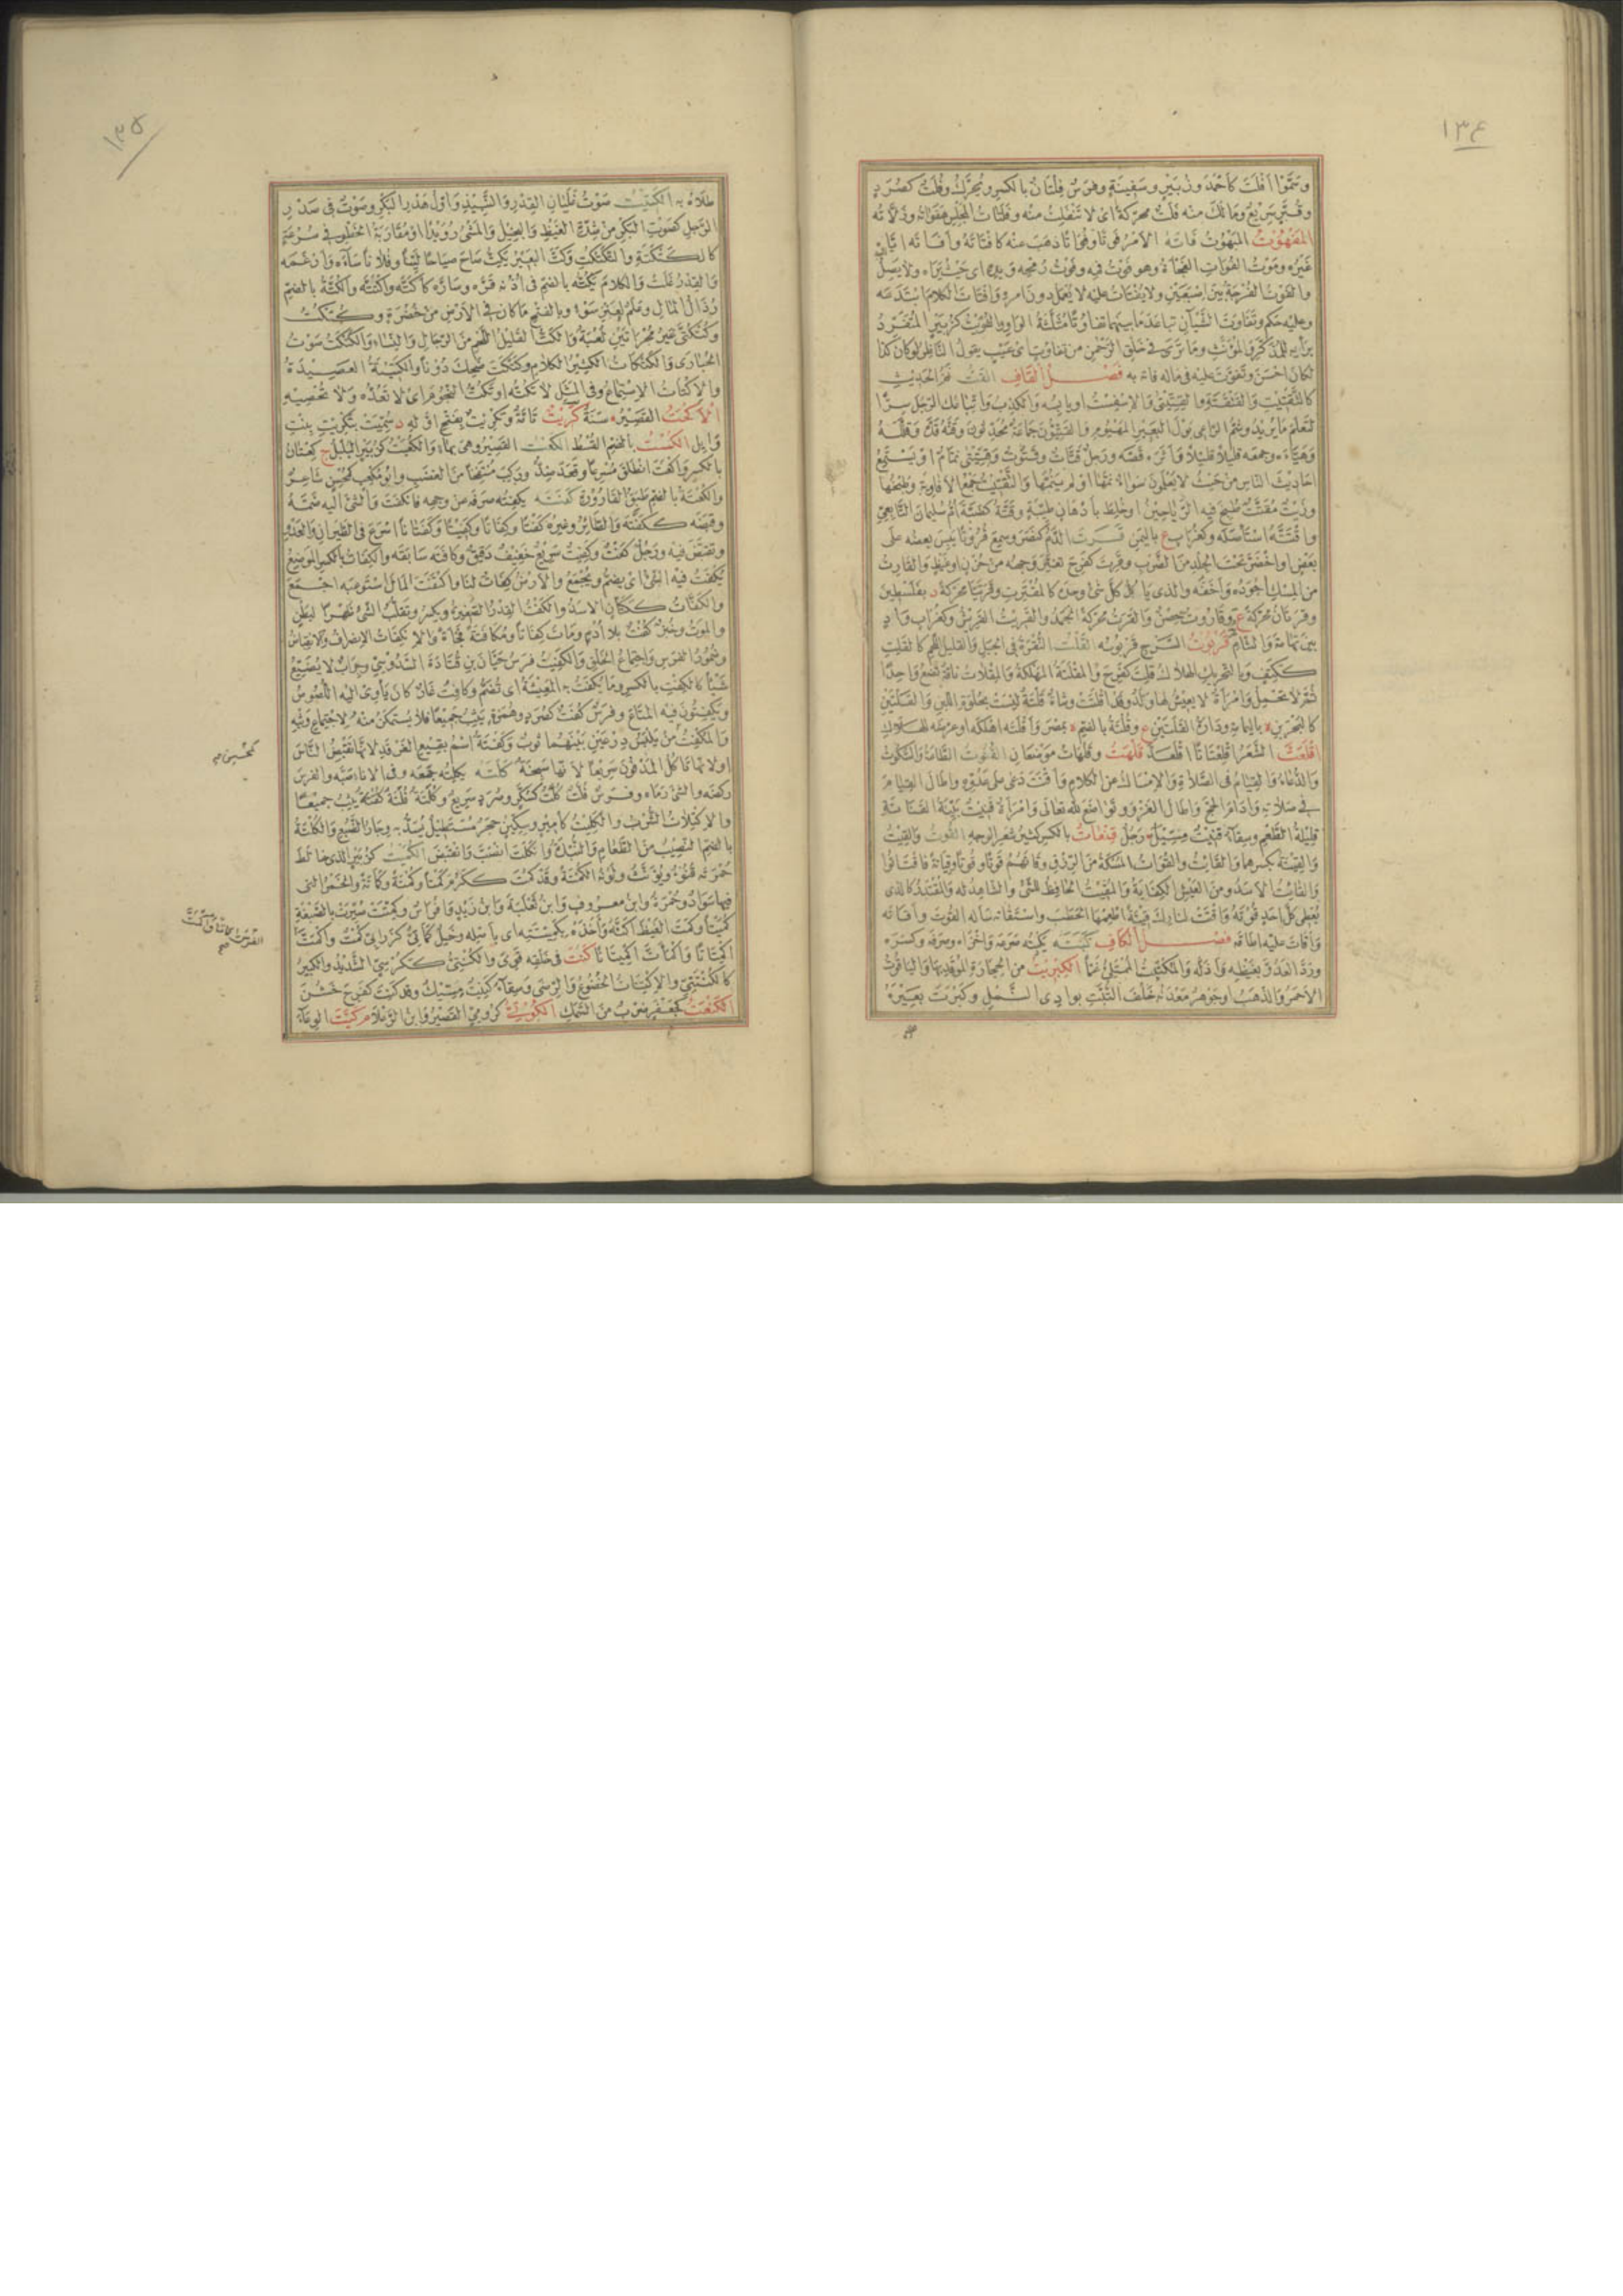 ١٣٤
وسَمَّوْا اَفْلَتَ كَاَحْمَدَ وزُبَيْرٍ وسَفِينَةٍ وفَرَسٌ فِلْتَانٌ بالكسرِ ويُحَرَّكُ وفُلَتٌ كصُرَدٍ
وقُبَّرٍ سَرِيعٌ وما لَكَ منه فَلَتٌ محركةً اى لا تَنْفَلِتُ منه وفَلَتَاتُ المَجْلِسِ هَفَوَاتُهُ وزَلَّاتُه
المَفْهُوتُ المَبْهُوتُ فَاتَهُ الاَمْرُ فَوْتًا وفَوَاتًا ذَهَبَ عنْه كافْتَاتَهُ واَفَاتَه اِيَّاهُ
غَيْرُه ومَوْتُ الفَوَاتِ الفَجْأَةُ وهو فَوْتُ فِيه وفَوْتُ رُمْحِه و يدِه اى حَيْثُ يَرَاه ولا يَصِلُ
والفَوْتُ الفُرْجَةُ بين اِصْبَعَيْنِ ولا يُفْتَاتُ عليه لا يُعْمَلُ دونَ امرِهِ وافْتَاتَ الكلامَ ابْتَدَعَه
وعليه حَكَم وتَفَاوَتَ الشَّيْآنِ تباعَدَ ما بينهما تفاوُتًا مُثَلَّثَةَ الواوِ والفُوَيْتُ كزُبَيْرٍ المُتَفَرِّدُ
برَأيِه للمُذَكَّرِ والمُؤَنَّثِ وما تَرَى فى خَلْقِ الرَّحْمٰنِ من تفاوُتٍ اى عَيْبٍ يقولُ النَّاظِرُ لو كانَ كذا
لكانَ اَحْسَنَ وتَفَوَّتَ عليه فى مالِه فاتَه به فصْل القَاف القَتُّ نَمُّ الحَدِيثِ
كالتَّقْتِيتِ والقَتْقَتَةِ والقِتِّيتَى والاِسْفِسْتُ او يابِسُه والكَذِبُ واتِّبَاعُكَ الرَّجُلَ سِرًّا
لتَعْلَمَ ما يُرِيدُ وشَمُّ الرَّاعِى بَوْلَ البَعِيرِ المَهْيُومِ والقَتِّيُّونَ جَماعَةٌ مُحَدِّثُونَ وقَتَّهُ قَدَّه وقَلَّلَهُ
وهَيَّأَه وجمعَه قليلاً قليلاً واَثَرَه قَصَّه ورَجلٌ قَتَّاتٌ وقَتُوتٌ وقِتِّيتَى نَمَّامٌ او يَسْتَمِعُ
اَحَادِيثَ النَّاسِ من حَيْثُ لا يَعْلَمُونَ سواءٌ نَمَّها او لم يَنُمَّها والتَّقْتِيتُ جَمْعُ الاَفَاوِيهِ وطَبْخُها
وزَيْتٌ مُقَتَّتٌ طُبِخَ فيه الرَّيَاحِينُ او خُلِطَ باَدْهَانٍ طَيِّبَةٍ وقَتَّةُ كضَبَّةَ اُمُّ سُلَيمانَ التَّابِعِىِّ
واقْتَتَّهُ اسْتَأْصَلَه وكغُرَابٍ ع باليَمَنِ قَرَتَ الدَّمُ كنَصَرَ وسَمِعَ قُرُوتًا يَبِسَ بعضُه على
بعضٍ او اخْضَرَّ تحتَ الجِلْدِ من الضَّرْبِ وقَرِتَ كفَرِحَ تغيَّرَ وَجهُه من حُزْنٍ او غَيْظٍ والقارِتُ
من المِسْكِ اَجْوَدُه واَجَفُّه والذى يَاكُلُ كلَّ شىْءٍ وجدَه كالمُقْتَرِتِ وقَرَتَيَّا محركةً د بفَلَسْطِينَ
وقَرَتَانُ مُحركةً ع وقارُوتُ حِصْنٌ والقَرَتُ محركةً الجَمَدُ والقَرِيتُ القَرِيسُ وكغُرَابٍ وَادٍ
بين تِهَامَةَ والشَّامِ قَرَبُوتُ السَّرْجِ قَرَبُوسُه القَلْتُ النُّقْرَةُ فى الجَبَلِ والقليلُ اللَّحْمِ كالقَلِتِ
ككَتِفٍ وبالتحريكِ الهلاكُ قَلِتَ كفَرِحَ والمَقْلَتَةُ المَهْلَكَةُ والمِقْلَاتُ ناقَةٌ تَضَعُ واحِدًا
ثُمَّ لا تَحْمِلُ وامْرَأَةٌ لا يعِيشُ لها وَلَدٌ وقد اَقْلَتَتْ وشَاةٌ قَلْتَةٌ ليْسَتْ بحُلْوَةِ اللَّبَنِ والقَلَتَيْنِ
كالبَحْرَيْنِ ة باليَمَامَةِ ودَارَةُ القَلْتَيْنِ ع وقُلْتَةُ بالضمِّ ة بمِصْرَ واَقْلَتَه اَهْلَكَه او عرضَه للهَلاكِ
اقْلَعَتَّ الشَّعَرُ اقْلِعْتَاتًا اقْلَعَدَّ قَلْهَتُ وقَلْهَاتُ موضعانِ القُنُوتُ الطَّاعَةُ والسُّكُوتُ
والدُّعَاءُ والقِيَامُ فى الصَّلاةِ والاِمْسَاكُ عن الكلامِ واَقْنَتَ دَعَى على عَدُوِّه واَطَالَ القِيَامَ
فى صَلاتِه واَدَامَ الحَجَّ واَطالَ الغَزْوَ وتَوَاضَعَ للهِ تعالى وامْرَأَةٌ قَنِيتٌ بَيِّنَةُ القَنَاتَةِ
قليلةُ الطَّعْمِ وسِقَاءٌ قِنِّيتٌ مِسِّيكٌ رَجُلٌ قِنْعَاتٌ بالكسرِ كثيرُ شَعَرِ الوجهِ القُوتُ والقِيتُ
والقِيتَةُ بكسرهما والقَائِتُ والقُوَاتُ المُسْكَةُ من الرِّزْقِ وقاتَهُم قَوْتًا وقُوتًا وقِيَاتَةً فاقْتَاتُوا
والقَائِتُ الاَسَدُ ومن العَيْشِ الكِفَايَةُ والمُقِيتُ الحَافِظُ للشَّىْءِ والشَّاهِدُ له والمُقْتَدِرُ كالذى
يُعْطِى كلَّ اَحَدٍ قُوتَهُ واقْتَتْ لِنارِكَ قِيتَةً اَطْعِمْها الحَطَبَ واسْتَقَاتَه سَاَلَه القُوتَ واَقَاتَه
واَقَاتَ عليه اَطَاقَه فصْل الكَاف كَبَتَه يَكْبِتُه صَرَعَه واَخْزَاه وصَرَفَه وكَسَرَه
ورَدَّ العَدُوَّ بغَيْظِه واَذَلَّه والمُكْتَبِتُ المُمْتَلِىُّ غَمًّا الكِبْرِيتُ من الحِجَارَةِ المُوقَدِ بها والياقُوتُ
الاَحمرُ والذَّهَبُ او جَوْهَرٌ مَعْدِنُه خَلْفَ التُّبَّتِ بوادِى النَّمْلِ وكَبْرَتَ بَعِيرَهُ
١٣٥
طَلَاهُ به الكَتِيتُ صَوْتُ غَلَيَانِ القِدْرِ والنَّبِيذِ واَوَّلُ هَدْرِ البَكْرِ وصَوْتٌ فى صَدْرِ
الرَّجلِ كصَوْتِ البَكْرِ من شِدَّةِ الغَيْظِ والبَخِيلُ والمَشْىُ رُوَيْدًا او مُقَارَبَةُ الخَطْوِ فى سُرْعَةٍ
كالكَتْكَتَةِ والتَّكَتْكُتِ وكَتَّ البَعِيرُ يَكِتُّ صَاحَ صِيَاحًا لَيِّنًا وفُلانًا سَاءَه واَرْغَمَه
والقِدْرُ غَلَتْ والكلامَ يَكُتُّه بالضمِّ فى اُذُنِه قَرَّه وسَارَّه كاَكَتَّه واكْتَتَّه والكُتَّةُ بالضمِّ
رُذَالُ المَالِ وعَلَمٌ لعَنْزِ سَوْءٍ وبالفتحِ ما كانَ فى الاَرضِ من خُضْرَةٍ وكَتْكَتُ
وكَتْكَتَى غيرَ مُجْرَاتَيْنِ لُعْبَةٌ والكَتُّ القليلُ اللَّحْمِ من الرِّجَالِ والنِّسَاءِ والكَتْكَتُ صَوْتُ
الحُبَارَى والكَتْكَاتُ الكثيرُ الكلامِ وكَتْكَتَ ضَحِكَ دُونًا والكَتِيتَةُ العَصِيدَةُ
والاِكْتِتَاتُ الاِسْتِمَاعُ وفى المَثَلِ لا تَكُتُّه او تَكُتَّ النُّجُومَ اى لا تَعُدُّه ولا تُحْصِيهِ
الاَكْحَتُ القَصِيرُ سَنَةٌ كَرِيتٌ تَامَّةٌ وتَكْرِيتُ بفَتْحِ اَوَّلِه د سُمِّيَتْ بتَكْرِيتَ بِنْتِ
وَايِل الكُسْتُ بالضمِّ القُسْطُ الكَعْتُ القَصِيرُ وهى بهاءٍ والكُعَيْتُ كزُبَيْرٍ البُلْبُلُ ج كِعْتَانٌ
بالكسرِ واَكْعَتَ انْطَلَقَ مُسْرِعًا وقَعَدَ ضِدٌّ ورَكِبَ مُنْتَفِخًا من الغَضَبِ وابو مُكْعِتٍ كمُحْسِنٍ شَاعِرٌ
والكُعْتَةُ بالضمِّ طَبَقُ القَارُورَةِ كَفَتَه يَكْفِتُه صرفَه عن وجهِه فانكفَتَ والشىْءَ اليه ضَمَّهُ
وقبضَه ككَفَّتَه والطَّائِرُ وغيرُه كَفْتًا وكِفَاتًا وكَفِيتًا وكَفَتَانًا اَسْرَعَ فى الطَّيَرانِ والعَدْوِ
وتقبَّضَ فيه ورَجُلٌ كَفْتٌ وكَفِيتٌ سَرِيعٌ خَفِيفٌ دَقِيقٌ وكافَتَه سَابَقَه والكِفَاتُ بالكسرِ الموضِعُ
يُكْفَتُ فيه الشىْءُ اى يضمُّ ويُجْمَعُ والاَرْضُ كِفَاتٌ لنا واكْتَفَتَ المالَ اسْتَوعبَه اجْمَعَ
والكَفَّاتُ ككَتَّانٍ الاَسَدُ والكَفْتُ القِدْرُ الصَّغِيرَةُ ويُكسرُ وتَقَلُّبُ الشَّىْءِ ظَهْرًا لبَطْنٍ
والموتُ وخُبْزٌ كَفْتٌ بلا اُدْمٍ ومَاتَ كِفَاتًا ومُكَافَتَةً فُجَاءَةً والانكِفَاتُ الانصرافُ والانقِبَاضُ
وضُمُورُ الفَرَسِ واجتماعُ الخَلْقِ والكَفِيتُ فَرَسُ حَيَّانَ بنِ قَتَادَةَ السَّدُوسِىِّ وجِرَابٌ لا يُضَيِّعُ
شَيْأً كالكِفْتِ بالكسرِ وما يُكْفَتُ به المَعِيشَةُ اى تُضَمُّ وكافِتُ غَارٌ كانَ يَأوِى اليه اللُّصُوصُ
ويَكْفِتُونَ فيه المتَاعَ وفَرَسٌ كُفَتٌ كصُرَدٍ وهُمَزَةٍ يَثِبُ جَمِيعًا فلا يُسْتَمْكَنُ منْه لاجتِمَاعِ وَثْبِه
والمُكْفِتُ من يَلْبَسُ دِرْعَيْنِ بَيْنَهُما ثَوْبٌ وكَفْتَةُ اسْمُ بَقِيعِ الغَرْقَدِ لاَنَّها تَقْبِضُ النَّاسَ
اولاَنَّها تَأكُلُ المَدْفُونَ سَرِيعًا لاَنَّها سَبِخَةٌ كَلَتَه يَكْلِتُه جَمَعَه وفى الاناءِ صَبَّه والفَرَسَ
ركضَه والشىْءَ رَمَاه وفَرَسٌ فُلَّتٌ كُلَّتٌ كسُكَّرٍ وصُرَدٍ سَرِيعٌ وكُلَتَةٌ فُلَتَةٌ كُفَتَةٌ يَثِبُ جميعًا
والاِكْتِلَاتُ الشُّرْبُ والكَلِيتُ كاَمِيرٍ وسِكِّينٍ حَجَرٌ مُسْتَطِيلٌ يُسَدُّ به وِجَارُ الضَّبُعِ والكُلْتَةُ
بالضمِّ النَّصِيبُ من الطَّعَامِ والنُّبْذَةُ وانْكَلَتَ انْصَبَّ وانْقَبَضَ الكُمَيْتُ كزُبَيْرٍ الذى خالَطَ
حُمْرَتَه قُنُوءٌ ويُؤَنَّثُ ولَوْنُه الكُمْتَةُ وقد كَمُتَ ككَرُمَ كَمْتًا وكُمْتَةً وكَمَاتَةً والخَمْرُ التى
فيها سَوَادٌ وحُمْرَةٌ وابنُ مَعْرُوفٍ وابنُ ثَعْلَبَةَ وابنُ زَيْدٍ واَفْرَاسٌ وكُمِّتَتْ صُيِّرَتْ بالصَّنْعَةِ
كُمَيْتًا وكَمَتَ الغَيْظَ اَكَنَّهُ واَخَذَه بكَمِيتَتِه اى باَصْلِه وخَيْلٌ كَمَاتِىُّ كزَرَابِىَّ كُمْتٌ واَكْمَتَ
اكْمِتَاتًا واكْمَاتَّ اكْمِيتَاتًا كَنَتَ فى خَلْقِه قَوِىَ والكُنْتِىُّ ككُرْسِىٍّ الشَّدِيدُ والكَبِيرُ
كالكُنْتُنِىِّ والاكْتِنَاتُ الخُضُوعُ والرِّضَى وسِقَاءٌ كَنِيتٌ مِسِّيكٌ وقد كَنِتَ كفَرِحَ خَشُنَ
الكَنْعَتُ كجَعْفَرٍ ضَرْبٌ من السَّمَكِ الكُوتِىُّ كرُومِىٍّ القَصِيرُ وابنُ الرَّعْلاءِ م كَيَّتَ الوِعَاءَ
كمحسن صح
الفرس اكماتًا واكمتّ
صح